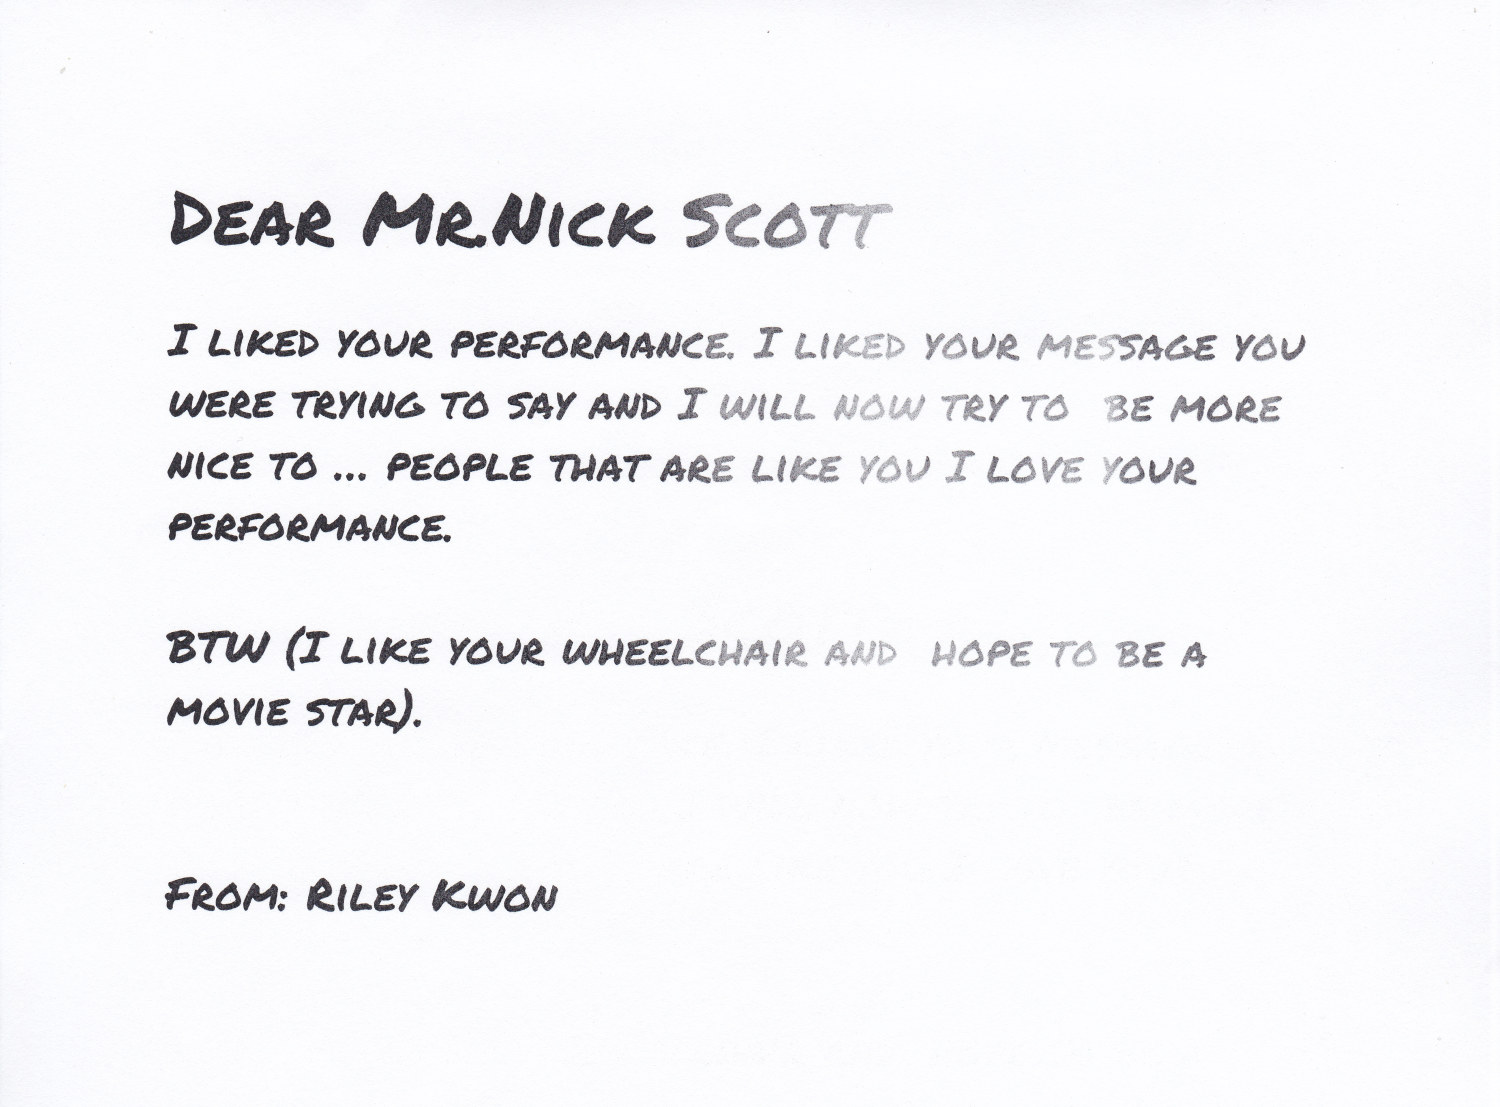 Dear Mr.Nick Scott
I liked your performance. I liked your message you
were trying to say and I will now try to  be more
nice to ... people that are like you I love your
performance.
BTW (I like your wheelchair and  hope to be a
movie star).
From: Riley Kwon